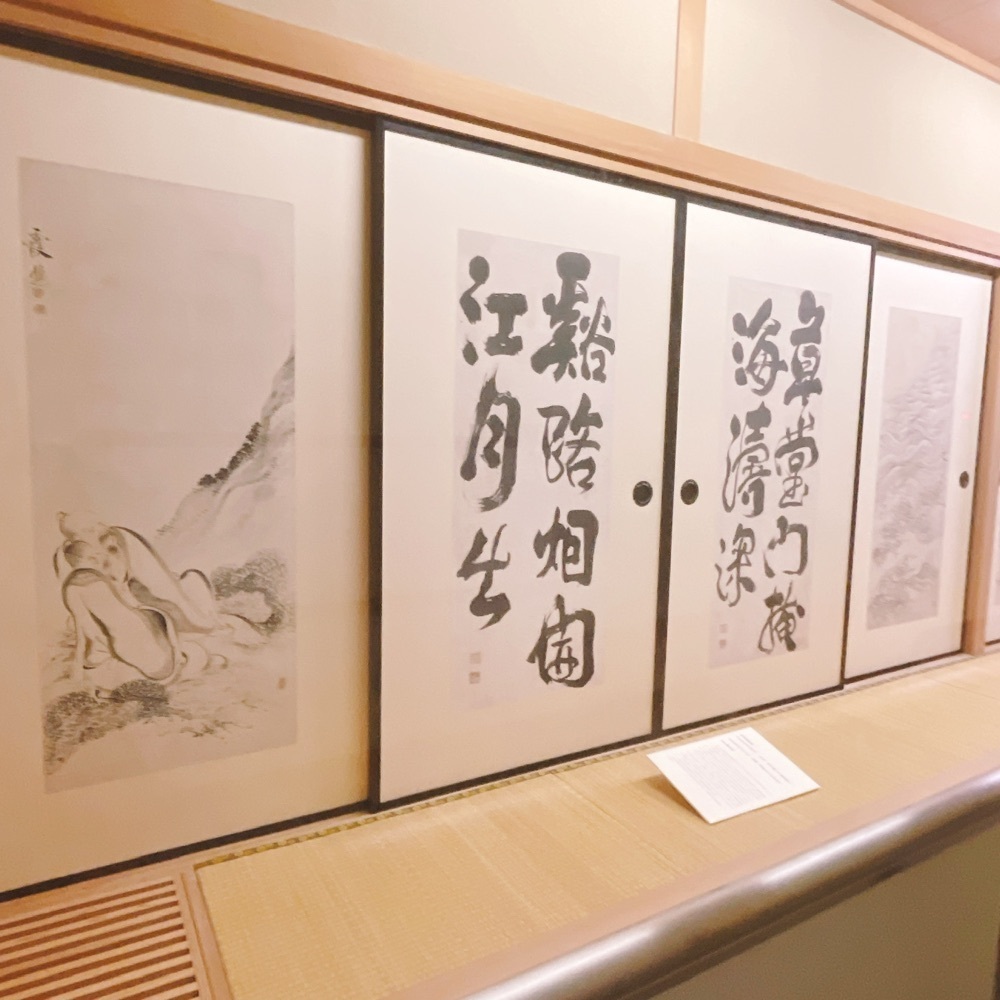 草堂門掩
海濤深
谿路烟開
江月出